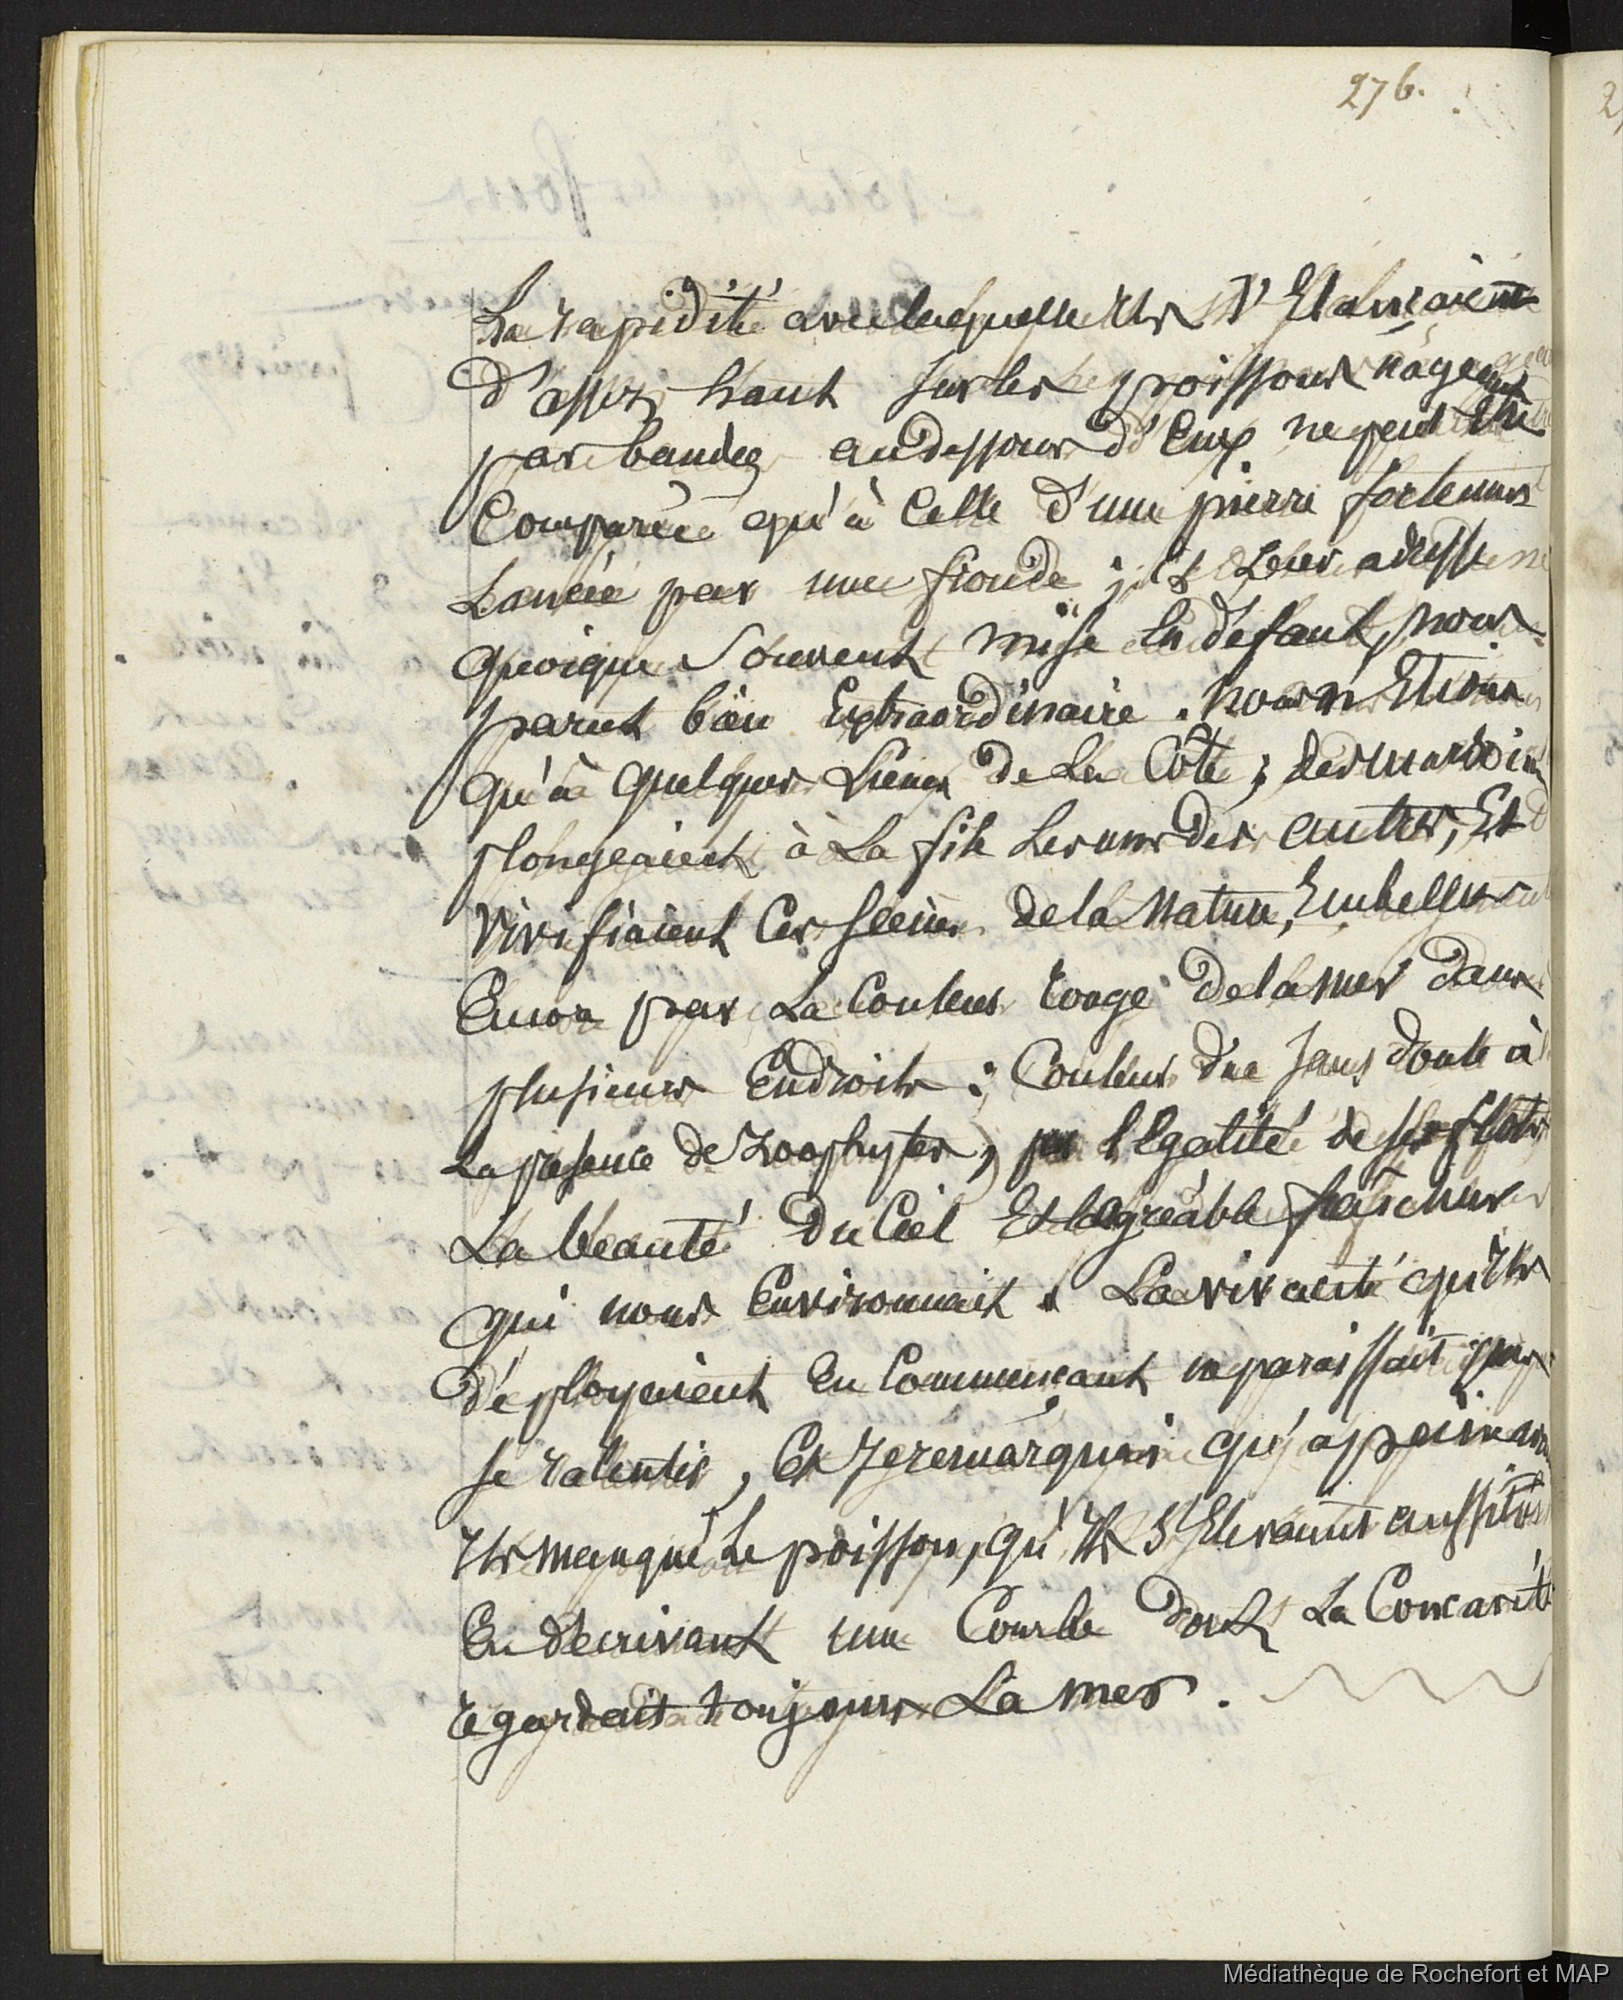 276.
La rapidité avec laquelle Ils s'Elançaient
d'assez haut sur les poissons nageant
par bandes audessous d'Eux ne peut être
Comparée qu'à Celle d'une pierre fortement
Lancée par une fronde ; & Leur adresse
quoique Souvent mise En défaut, nous
parut bien Extraordinaire. nous n'Etions
qu'à quelques Lieues de La Côte ; des marsoins
plongeaient à La file Les uns des autres, Et
vivifiaient Ces scènes de la Nature, Embellies
Encor par La Couleur rouge de la mer dans
plusieurs Endroits ; Couleur due sans doute à
La présence de zoophytes, par l'Egalité de ses flots
La beauté Du Ciel Et l'agréable fraîcheur
qui nous Environnait. La vivacité qu'Ils
déployaient En Commençant ne paraissait pas
se ralentir, Et Je remarquai qu'appeine avaient
Ils manqué Le poisson, qu'Ils s'Elevaient aussitôt
En décrivant une Courbe dont La Concavité
regardait toujours La mer.
Médiathèque de Rochefort et MAP